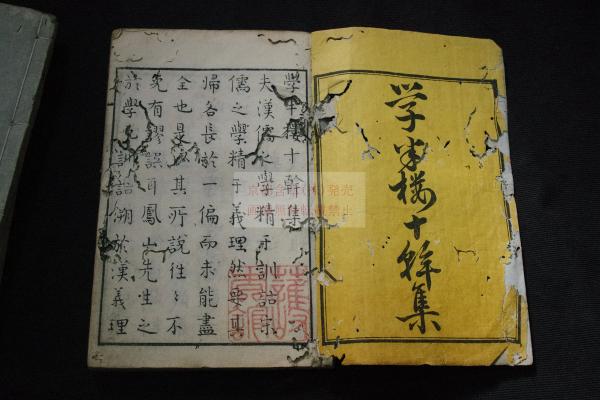 学半楼十幹集
學半樓十幹集
夫漢儒之學精于訓詁宋
儒之學精于義理然要其
帰各長於一偏而未能盡
全也是以其所說往々不
免有謬誤目鳳山先生之
於學也訓詁溯於漢義理